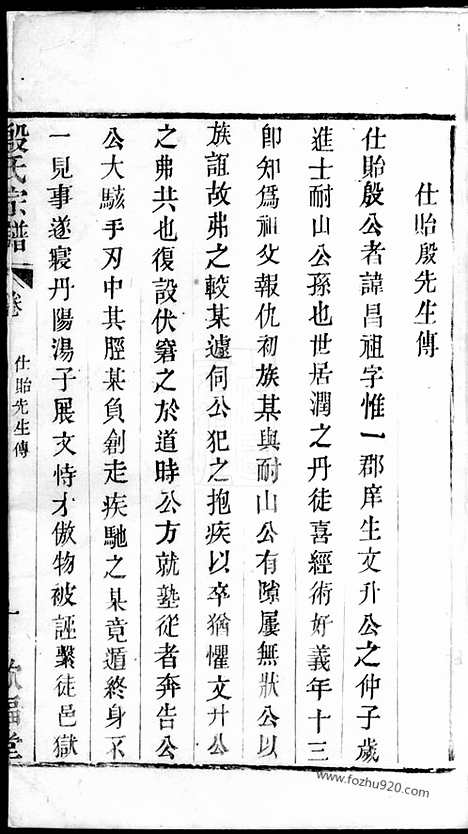 仕貽殷先生傳
仕貽殷公者諱昌祖字惟一郡庠生文升公之仲子歲
進士耐山公孫也世居潤之丹徒喜經術好義年十三
卽知爲祖父報仇初族某與耐山公有隙屢無狀公以
族誼故弗之較某遽伺公犯之抱疾以卒猶懼文升公
之弗共也復設伏窘之於道時公方就塾從者奔告公
公大駭手刃中其脛某負創走疾馳之某竟遁終身不
一見事遂寢丹陽湯子展文恃才傲物被誣繫徒邑獄
殷氏宗譜
卷
仕貽先生傳
一
福堂
www.fozhu920.com